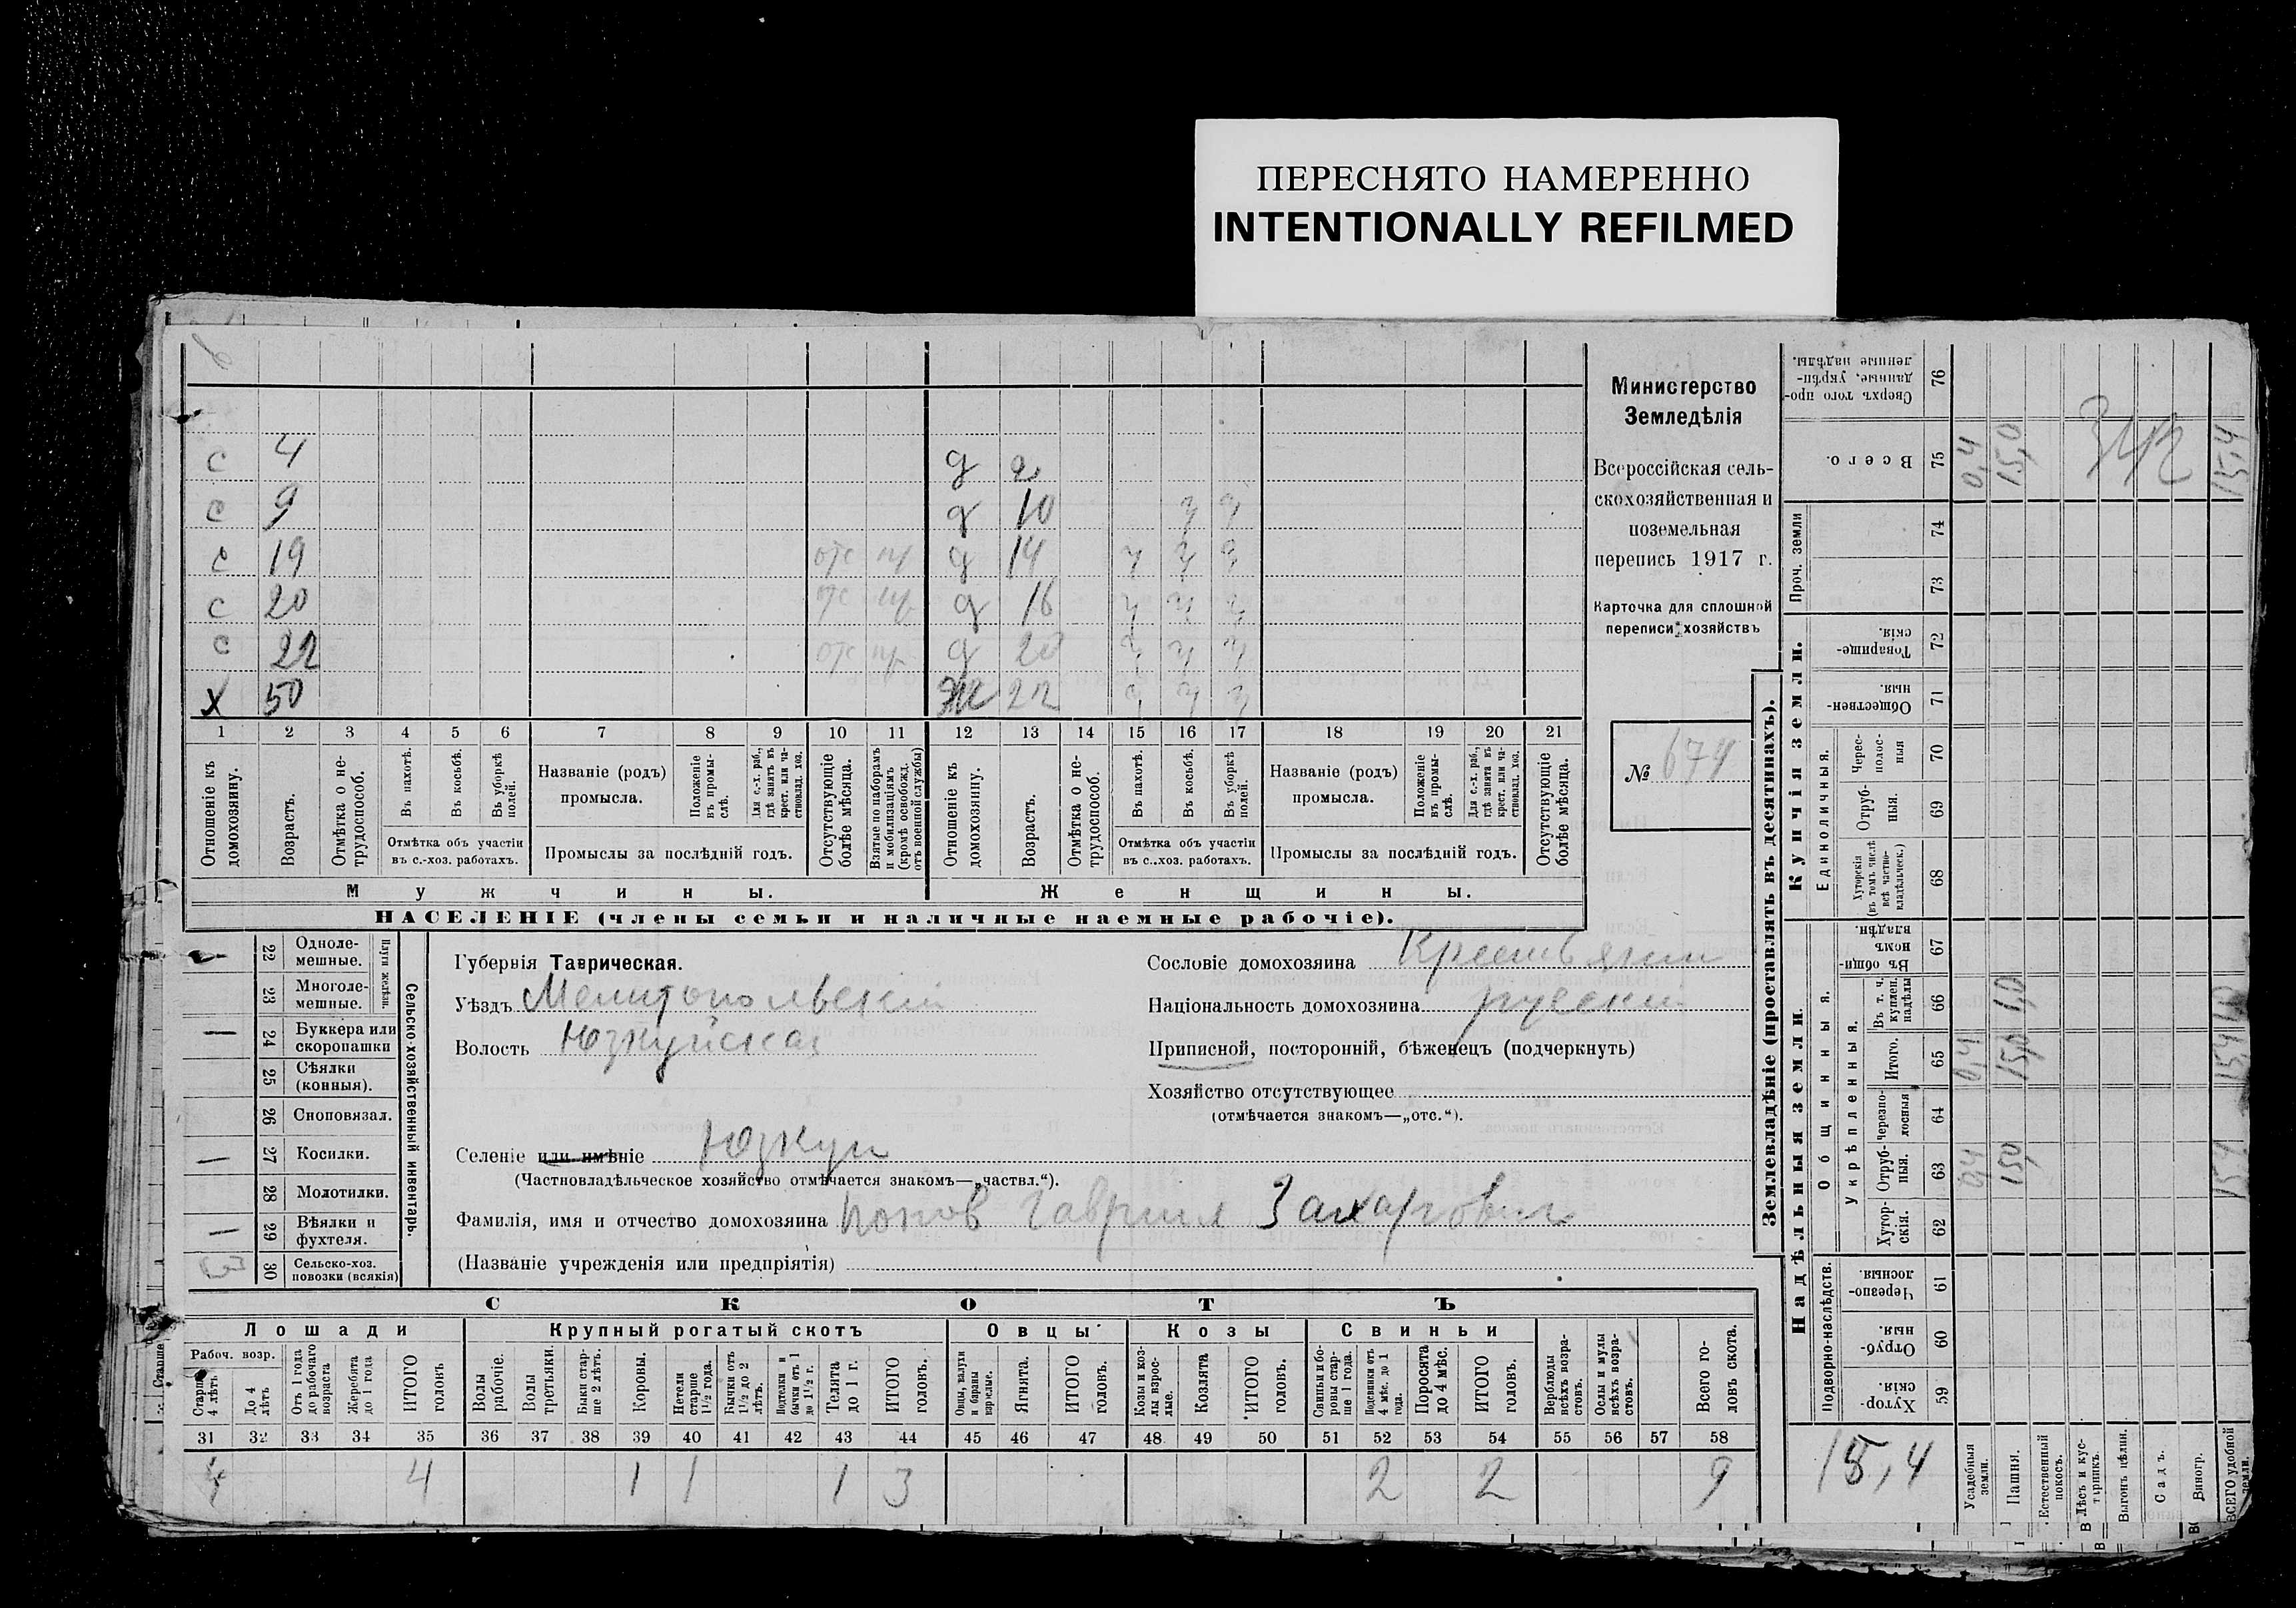 ПЕРЕСНЯТО НАМЕРЕННО
INTENTIONALLY REFILMED
с 4 д 2
с 9 д 10 ч ч
с 19 отс д 14 ч ч ч
с 20 отс д 16 ч ч ч
с 22 отс д 20 ч ч ч
х 50 ж 22 ч ч ч
1 2 3 4 5 6 7 8 9 10 11 12 13 14 15 16 17 18 19 20 21
Отношеніе къ домохозяину.
Возрастъ.
Отмѣтка о не-трудоспособ.
Въ пахотѣ.
Въ косьбѣ.
Въ уборкѣ полей.
Отмѣтка объ участіи
въ с.-хоз. работахъ.
Названіе (родъ)
промысла.
Положеніе въ промы-слѣ.
Для с.-х. раб., гдѣ занятъ въ крест. или ча-стновлад. хоз.
Промыслы за послѣдній годъ.
Отсутствующіе болѣе мѣсяца.
Взятые по наборамъ и мобилизаціямъ (кромѣ освобожд. отъ военной службы)
Отношеніе къ домохозяину.
Возрастъ.
Отмѣтка о не-трудоспособ.
Въ пахотѣ.
Въ косьбѣ.
Въ уборкѣ полей.
Отмѣтка объ участіи
въ с.-хоз. работахъ.
Названіе (родъ)
промысла.
Положеніе въ промы-слѣ.
Для с.-х. раб., гдѣ занята въ крест. или ча-стновлад. хоз.
Промыслы за послѣдній годъ.
Отсутствующіе болѣе мѣсяца.
Мужчины.
Женщины.
НАСЕЛЕНІЕ (члены семьи и наличные наемные рабочіе).
Министерство
Земледѣлія
Всероссійская сель-
скохозяйственная и
поземельная
перепись 1917 г.
Карточка для сплошной
переписи хозяйствъ
№ 674
22 Одноле-мешные.
23 Многоле-мешные.
Плуги желѣзн.
24 Буккера или скоропашки
25 Сѣялки (конныя).
26 Сноповязал.
27 Косилки.
28 Молотилки.
29 Вѣялки и фухтеля.
30 Сельско-хоз. повозки (всякія)
Сельско-хозяйственный инвентарь.
Губернія Таврическая.
Уѣздъ Мелитопольскій
Волость Юзкуйская
Селеніе или имѣніе Юзкуи
(Частновладѣльческое хозяйство отмѣчается знакомъ—„частвл.“).
Фамилія, имя и отчество домохозяина Попов Гавриил Захарович
(Названіе учрежденія или предпріятія)
Сословіе домохозяина Крестьянин
Національность домохозяина русский
Приписной, посторонній, бѣженецъ (подчеркнуть)
Хозяйство отсутствующее
(отмѣчается знакомъ—„отс.“).
СКОТЪ
Лошади
Крупный рогатый скотъ
Овцы
Козы
Свиньи
Рабоч. возр.
Старше 4 лѣтъ
До 4 лѣтъ
Отъ 1 года до рабочаго возраста
Жеребята до 1 года
ИТОГО головъ
Волы рабочіе.
Волы третьяки.
Быки стар-ше 2 лѣтъ.
Коровы.
Нетели старше 1½ года.
Бычки отъ 1½ до 2 лѣтъ.
Подтелки и бычки отъ 1 до 1½ г.
Телята до 1 г.
ИТОГО головъ.
Овцы, валухи и бараны взрослые.
Ягнята.
ИТОГО головъ.
Козы и коз-лы взрос-лые.
Козлята
ИТОГО головъ.
Свиньи и бо-ровы стар-ше 1 года.
Подсвинки отъ 4 мѣс. до 1 года.
Поросята до 4 мѣс.
ИТОГО головъ.
Верблюды всѣхъ возра-стовъ.
Ослы и мулы всѣхъ возра-стовъ.
Всего го-ловъ скота.
31 32 33 34 35 36 37 38 39 40 41 42 43 44 45 46 47 48 49 50 51 52 53 54 55 56 57 58
4 4 1 1 1 3 2 2 9
Землевладѣніе (проставлять въ десятинахъ).
Купчія земли.
Надѣльныя земли.
Сверхъ того про-данные, укрѣп-ленные надѣлы. 76
Всего. 75 0,4 15,0 342 15,4
Проч. земли 74 73
Товарище-скія. 72
Обществен-ныя. 71
Единоличныя.
Черес-полос-ныя 70
Отруб-ныя. 69
Хуторскія (въ томъ числѣ всѣ частно-владѣльческ.) 68
Общинныя.
Въ общи-номъ владѣн. 67
Укрѣпленныя.
Въ т. ч. куплен. надѣлы 66 1,0
Итого. 65 0,4 15,0 15,4
Черезпо-лосныя 64
Отруб-ныя. 63 0,4 15,0 15,4
Хутор-скія. 62
Подворно-наслѣдств.
Черезпо-лосныя. 61
Отруб-ныя. 60
Хутор-скія. 59
15,4
Усадебныя земли.
Пашня.
Естественный покосъ.
Лѣсъ и кус-тарникъ.
Выгонъ цѣлин.
Садъ.
Виногр.
ВСЕГО удобной земли.